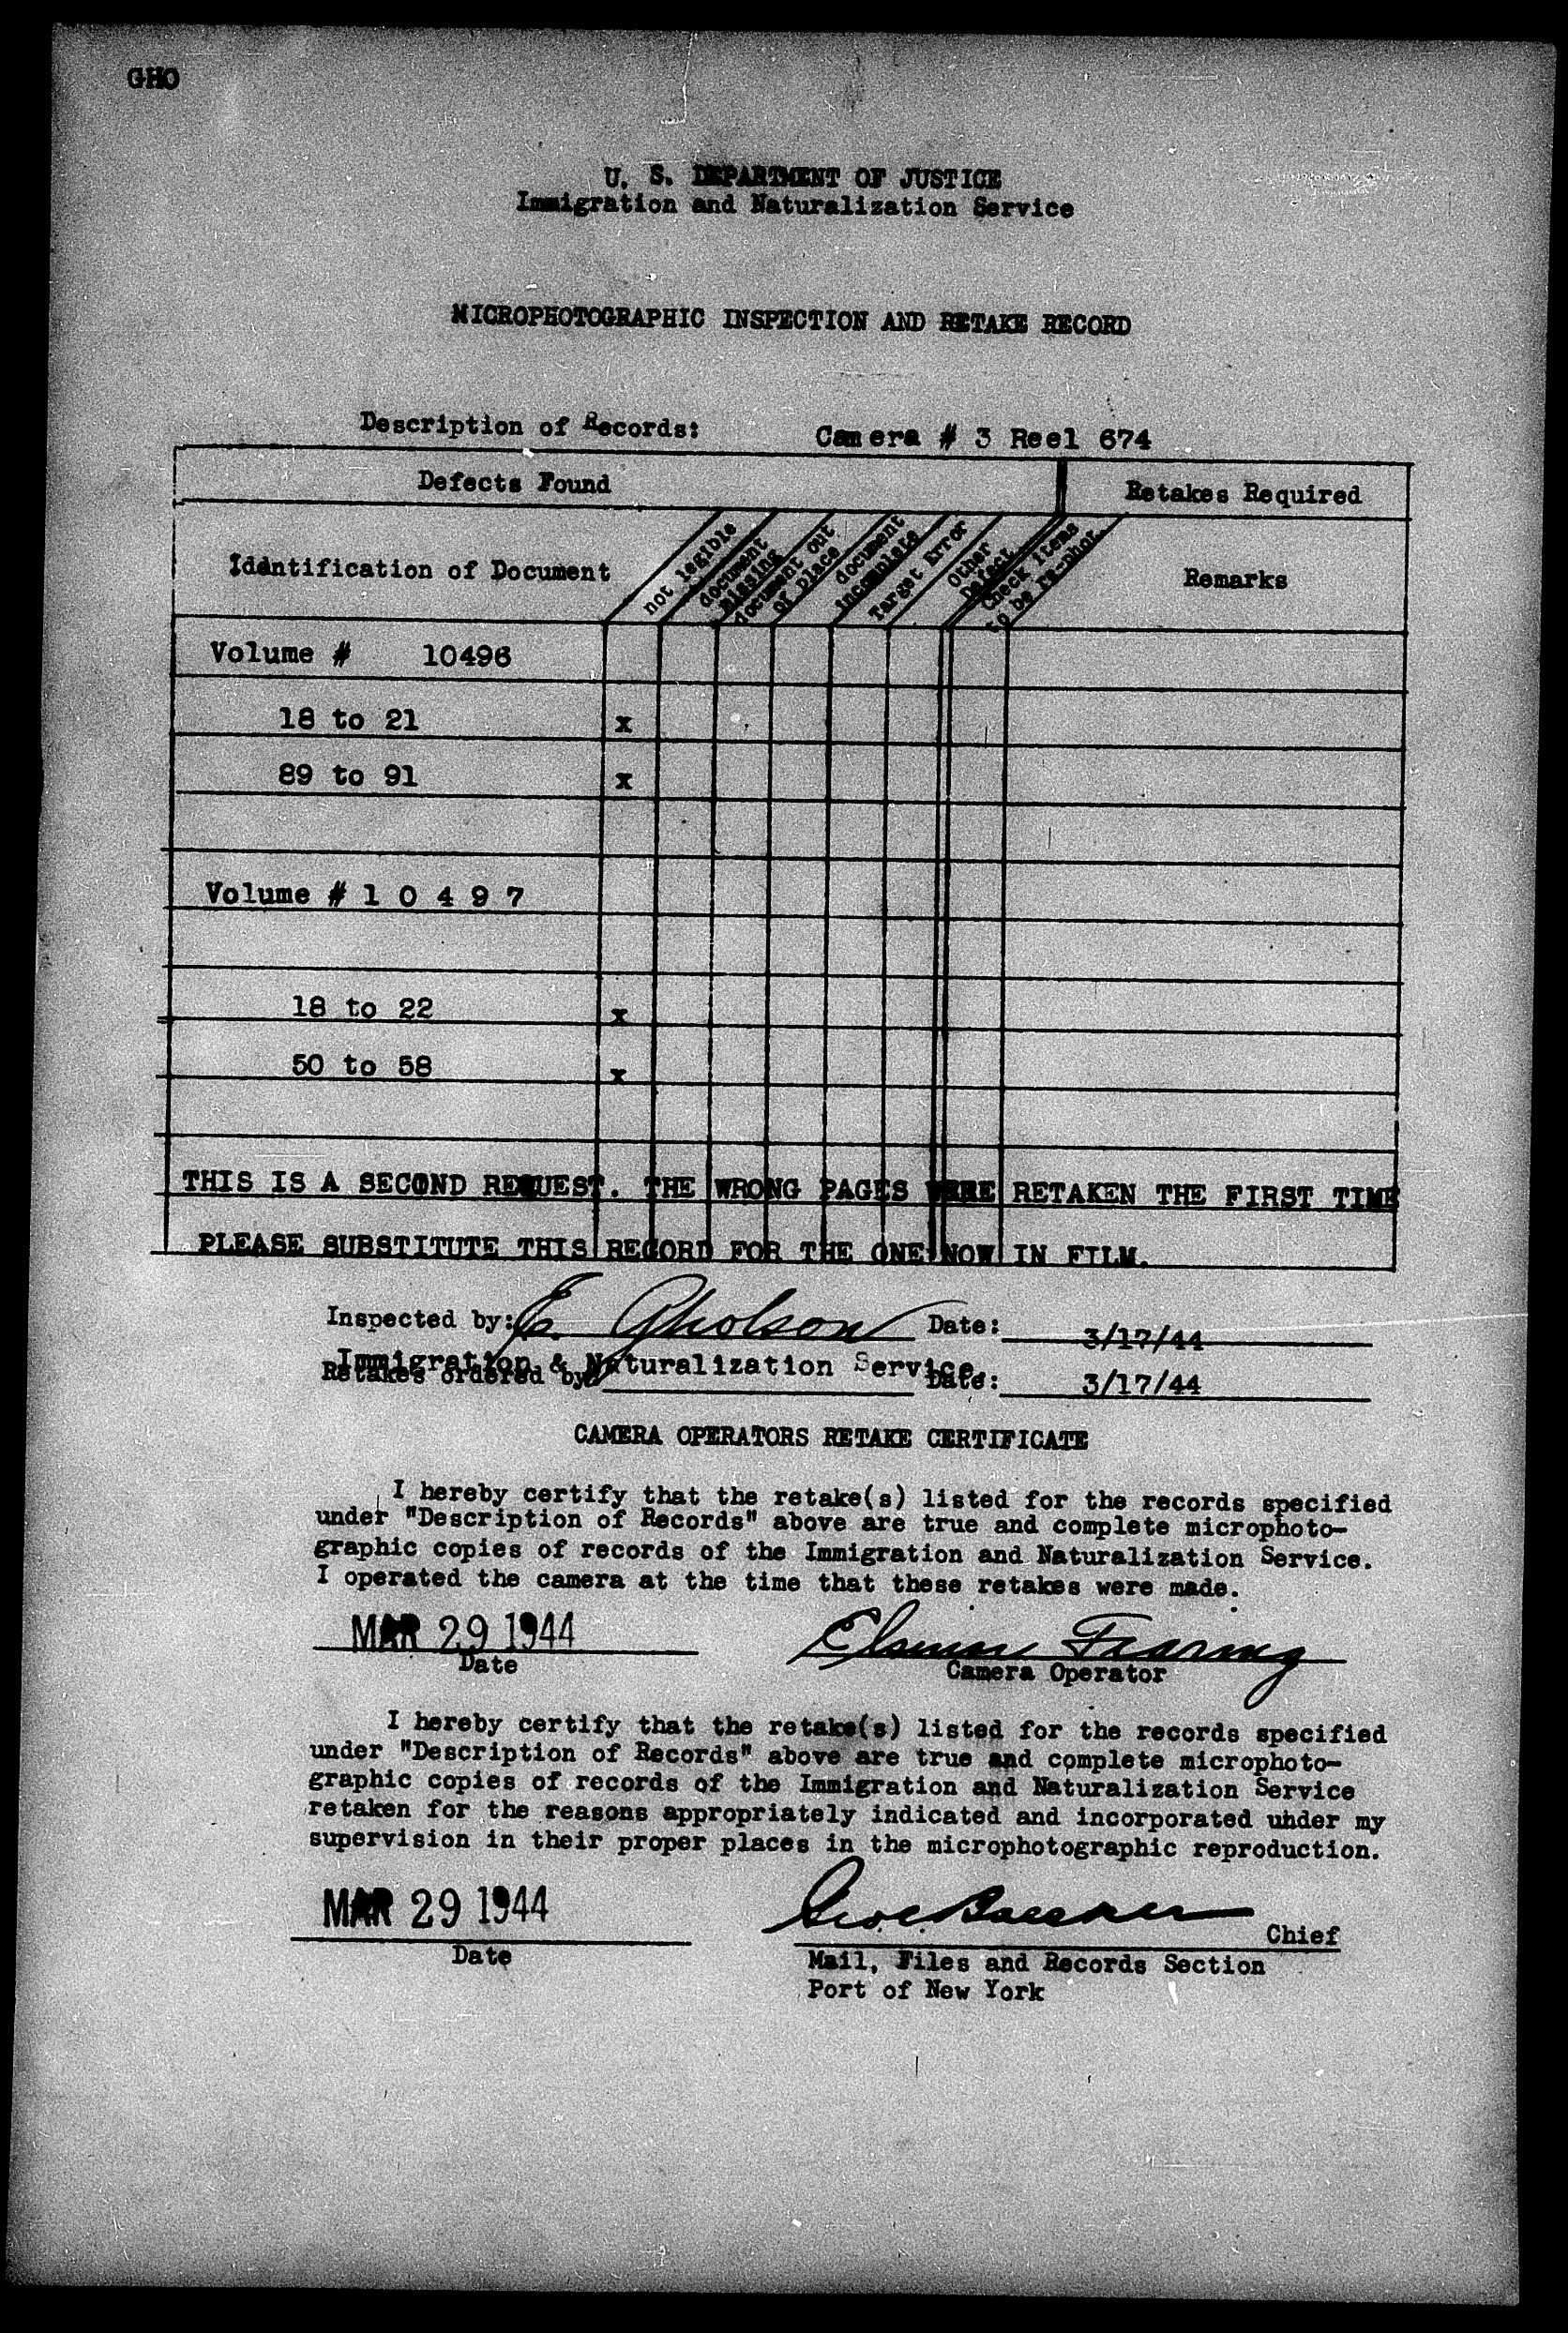 GHO
U. S. DEPARTMENT OF JUSTICE
Immigration and Naturalization Service
MICROPHOTOGRAPHIC INSPECTION AND RETAKE RECORD
Description of Records: Camera # 3 Reel 674
Defects Found Retakes Required
Identification of Document
not legible
document missing
document out of place
document incomplete
Target Error
Other Defect
Check items to be re-phot.
Remarks
Volume # 10496
18 to 21 x
89 to 91 x
Volume # 1 0 4 9 7
18 to 22 x
50 to 58 x
THIS IS A SECOND REQUEST. THE WRONG PAGES WERE RETAKEN THE FIRST TIME
PLEASE SUBSTITUTE THIS RECORD FOR THE ONE NOW IN FILM.
Inspected by: E. Gholson Date: 3/17/44
Immigration & Naturalization Service
Retakes ordered by Date: 3/17/44
CAMERA OPERATORS RETAKE CERTIFICATE
I hereby certify that the retake(s) listed for the records specified
under "Description of Records" above are true and complete microphoto-
graphic copies of records of the Immigration and Naturalization Service.
I operated the camera at the time that these retakes were made.
MAR 29 1944
Date Camera Operator
I hereby certify that the retake(s) listed for the records specified
under "Description of Records" above are true and complete microphoto-
graphic copies of records of the Immigration and Naturalization Service
retaken for the reasons appropriately indicated and incorporated under my
supervision in their proper places in the microphotographic reproduction.
MAR 29 1944 Chief
Date Mail, Files and Records Section
Port of New York